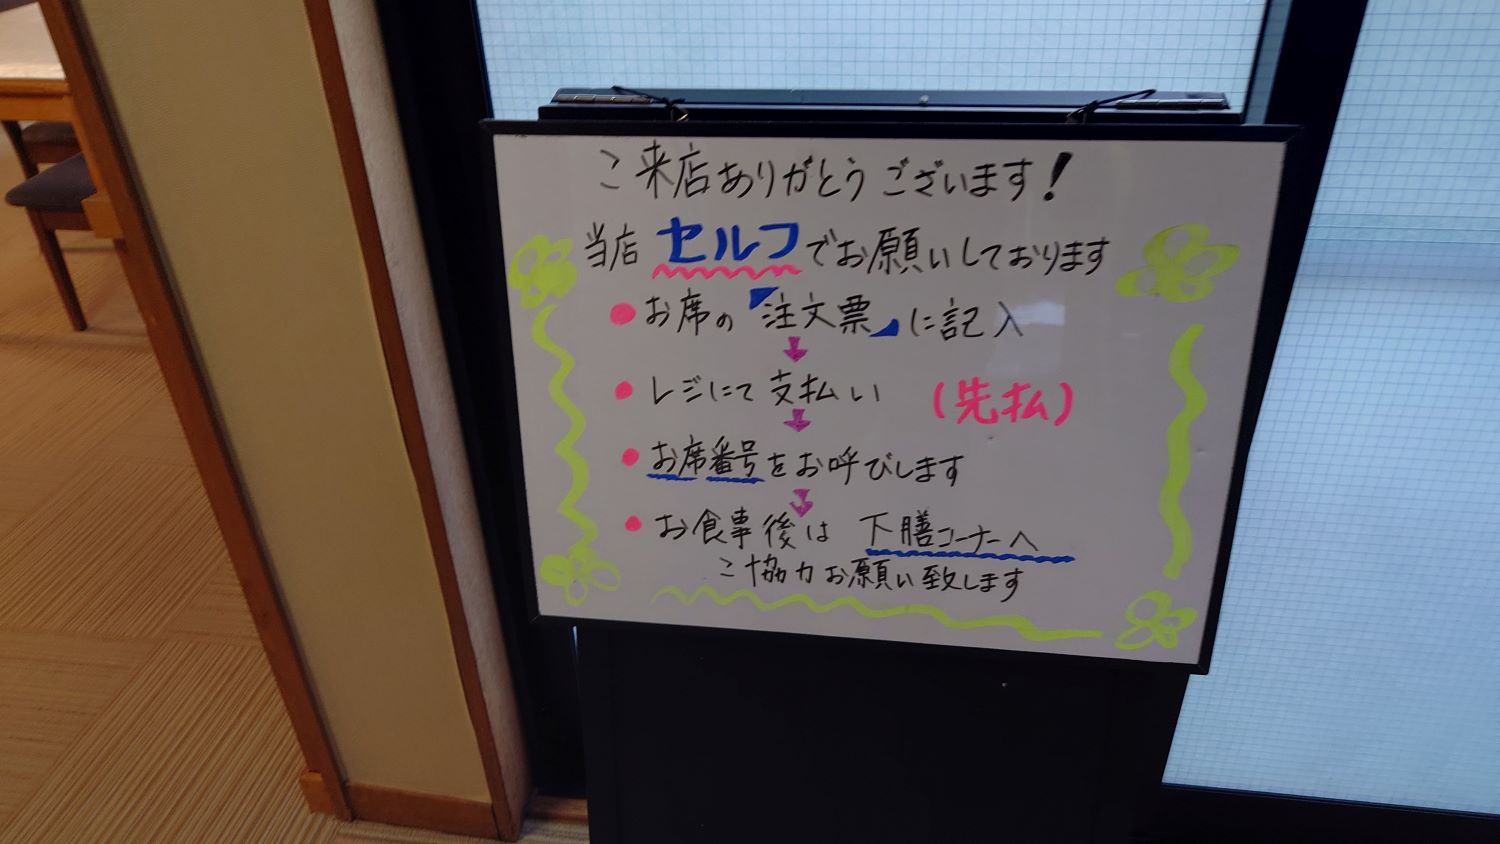 ご来店ありがとうございます!
当店 セルフでお願いしております
● お席の「注文票」に記入
↓
● レジにて支払い (先払)
↓
● お席番号をお呼びします
↓
● お食事後は 下膳コーナーへ
ご協力お願い致します